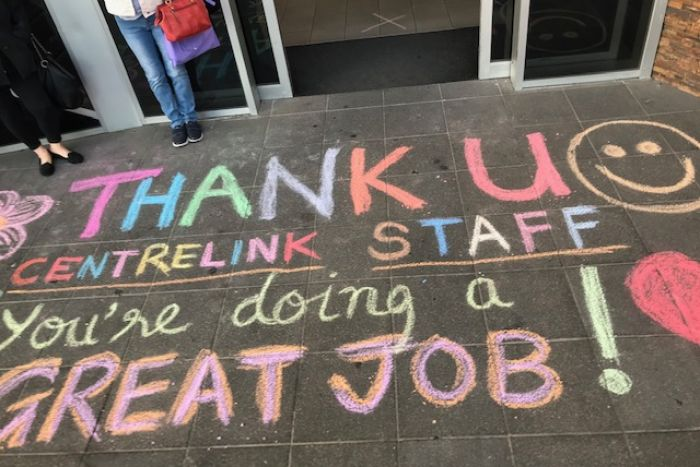 THANK U
CENTRELINK STAFF
You're doing a
GREAT JOB!